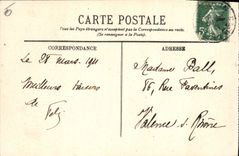 CARTE POSTALE
Tous les Pays étrangers n'acceptent pas la Correspondance au recto.
(Se renseigner à la Poste).
CORRESPONDANCE
ADRESSE
Le 28 mars 1911
Meilleurs baisers
de
Madame Ball
86, Rue Faventines
Valence s. Rhône